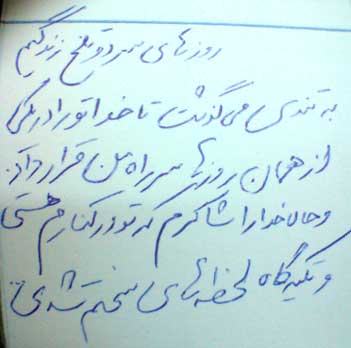 روزهای سرد و تلخ زندگیم
به تندی می‌گذشت تا خدا تو را در یکی
از همان روزها سر راه من قرار داد.
و حال خدا را شاکرم که تو در کنارم هستی
و تکیه‌گاه لحظه‌های سختم شدی